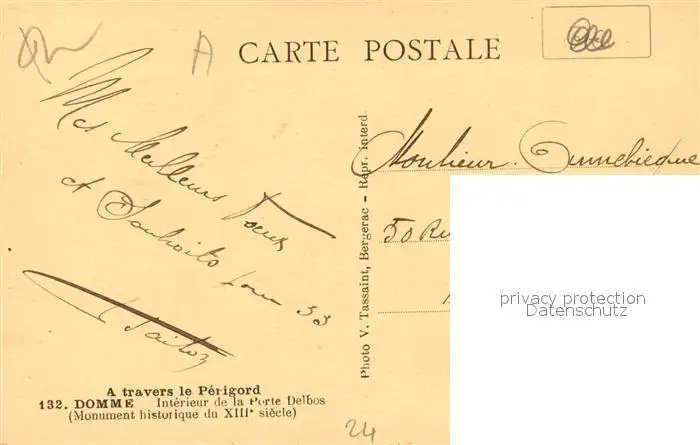 A
CARTE POSTALE
Mes Meilleurs Voeux
et Souhaits pour 53
Photo V. Tassaint, Bergerac - Repr. interd.
Monsieur
50 Ru
privacy protection
Datenschutz
A travers le Périgord
132. DOMME Intérieur de la Porte Delbos
(Monument historique du XIIIe siècle)
24